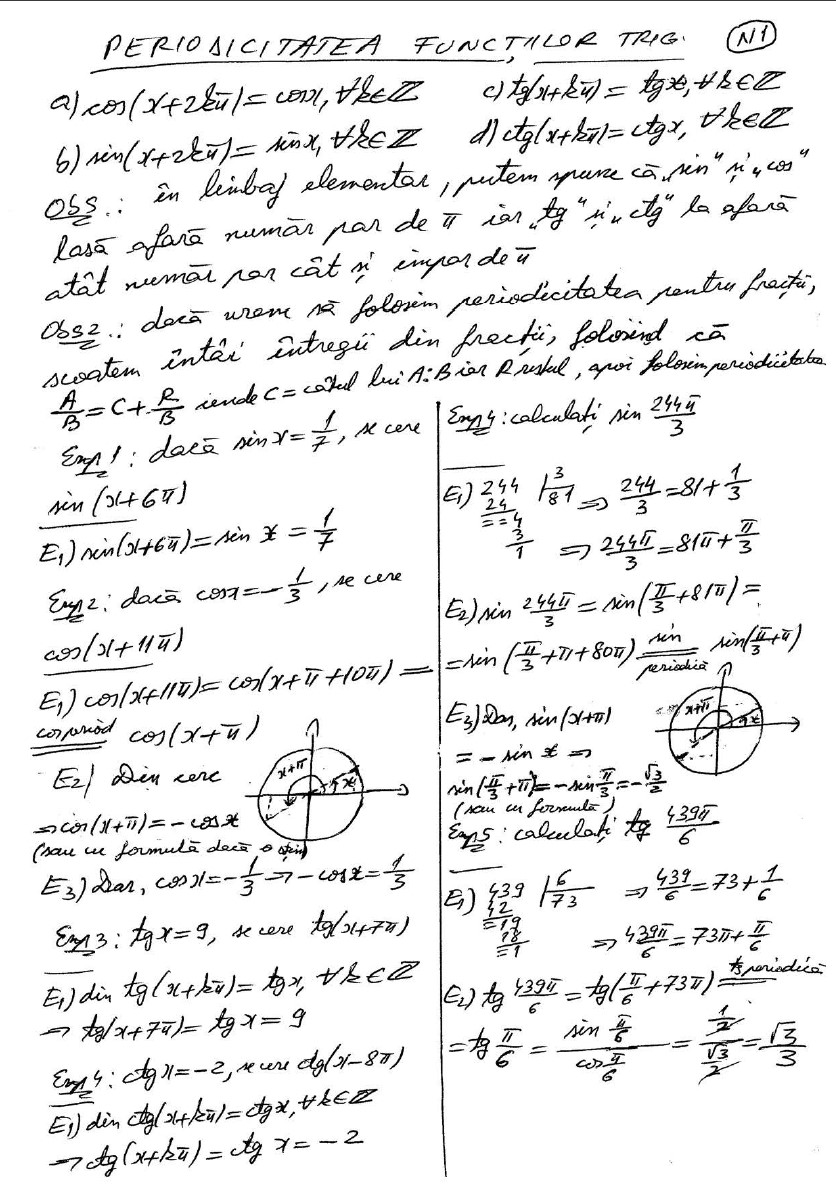 PERIODICITATEA FUNCȚIILOR TRIG. N1
a) cos(x+2kπ)=cosx, ∀k∈ℤ c) tg(x+kπ)= tgx, ∀k∈ℤ
b) sin(x+2kπ)= sinx, ∀k∈ℤ d) ctg(x+kπ)=ctgx, ∀k∈ℤ
Obs.: în limbaj elementar, putem spune că „sin" și „cos"
lasă afară număr par de π iar „tg" și „ctg" la afară
atât număr par cât și impar de π
Obs2.: dacă vrem să folosim periodicitatea pentru fracții,
scoatem întâi întregii din fracții, folosind că
A/B = C + R/B unde C = câtul lui A:B iar R restul, apoi folosim periodicitatea
Exp1: dacă sin x = 1/7, se cere
sin(x+6π)
E1) sin(x+6π)= sin x = 1/7
Exp2: dacă cosx=-1/3, se cere
cos(x+11π)
E1) cos(x+11π)= cos(x+π+10π) =
cos period cos(x+π)
E2) Din cerc
x+π x
⇒cos(x+π)=-cosx
(sau cu formulă dacă o știm)
E3) Dar, cosx=-1/3 ⇒ -cosx=1/3
Exp3: tgx=9, se cere tg(x+7π)
E1) din tg(x+kπ)= tgx, ∀k∈ℤ
⇒ tg(x+7π)= tgx = 9
Exp4: ctgx=-2, se cere ctg(x-8π)
E1) din ctg(x+kπ)=ctgx, ∀k∈ℤ
⇒ ctg(x+kπ)= ctg x = -2
Exp4: calculați sin 244π/3
E1) 244 | 3 ⇒ 244/3 = 81+1/3
24 81
==4
3
1 ⇒ 244π/3 = 81π+π/3
E2) sin 244π/3 = sin(π/3+81π) =
= sin(π/3+π+80π) sin periodică = sin(π/3+π)
E3) Dar, sin(x+π)
x+π x
= - sin x ⇒
sin(π/3+π)=-sin π/3=-√3/2
(sau cu formulă)
Exp5: calculați tg 439π/6
E1) 439 | 6 ⇒ 439/6 = 73+1/6
42 73
=19
18
=1 ⇒ 439π/6 = 73π+π/6
E2) tg 439π/6 = tg(π/6+73π) tg periodică =
= tg π/6 = sin π/6 / cos π/6 = 1/2 / √3/2 = √3/3